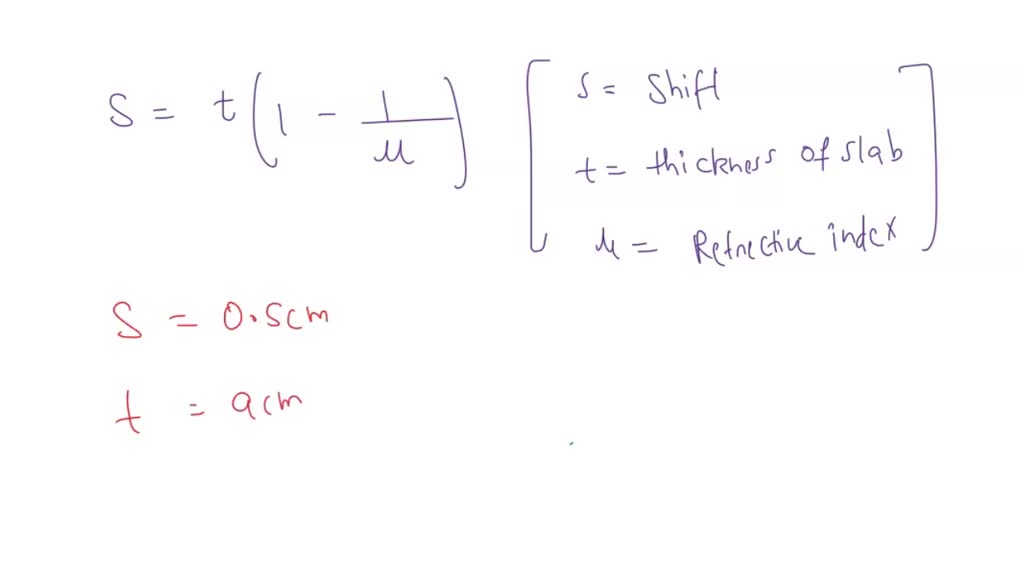 S = t(1 - 1/μ)
S = Shift
t = thickness of slab
μ = Refrective index
S = 0.5cm
t = 9cm